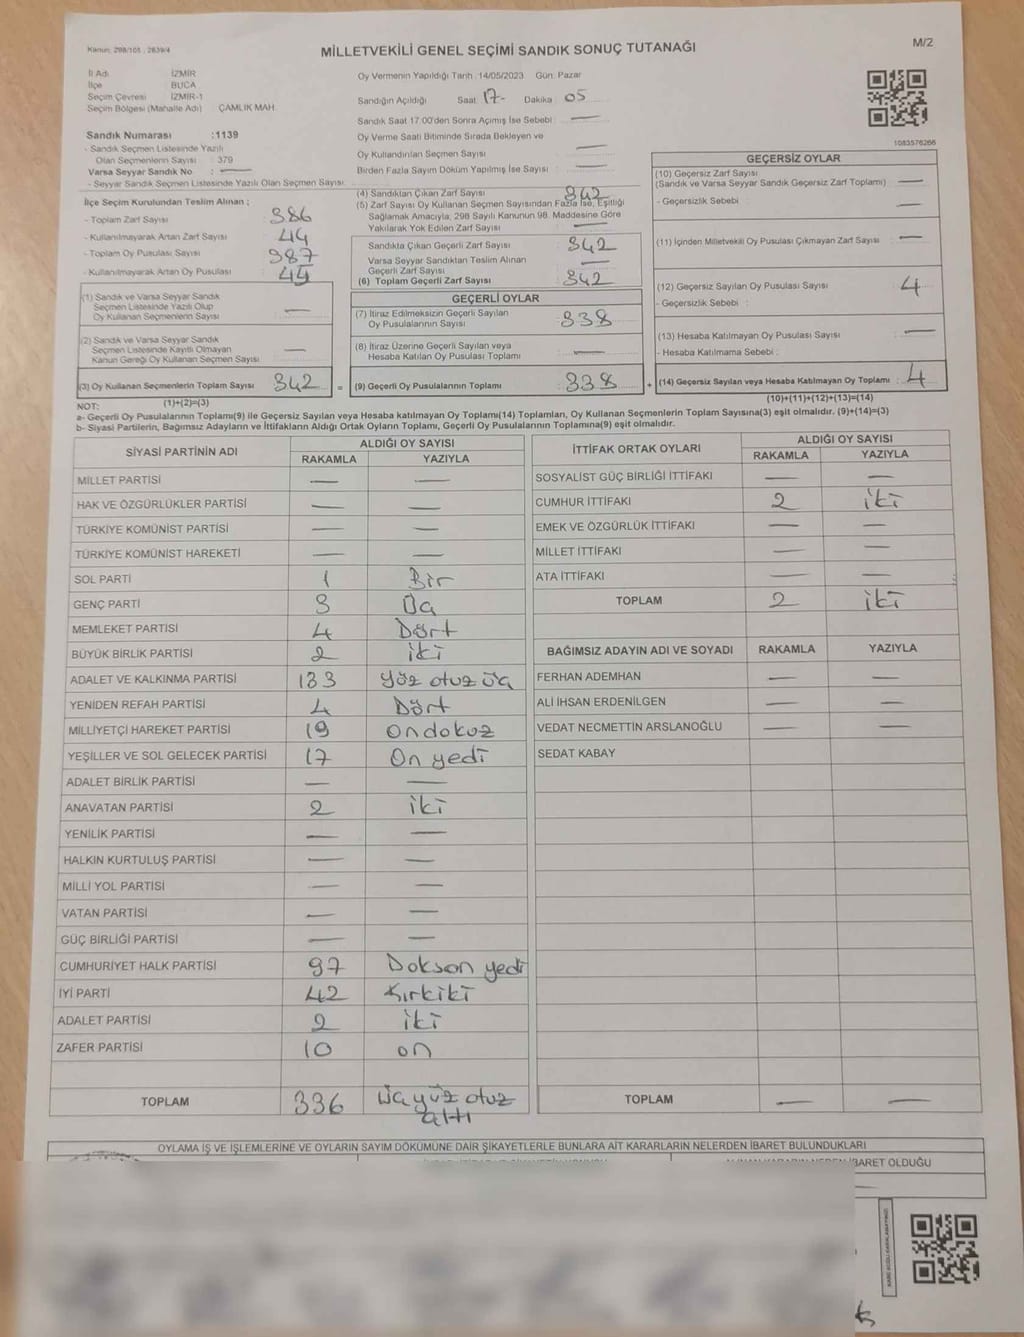 Kanun: 298/105 , 2839/4
MİLLETVEKİLİ GENEL SEÇİMİ SANDIK SONUÇ TUTANAĞI
M/2
İl Adı İZMİR
İlçe BUCA
Seçim Çevresi İZMİR-1
Seçim Bölgesi (Mahalle Adı) ÇAMLIK MAH.
Sandık Numarası :1139
- Sandık Seçmen Listesinde Yazılı
Olan Seçmenlerin Sayısı : 379
Varsa Seyyar Sandık No : —
- Seyyar Sandık Seçmen Listesinde Yazılı Olan Seçmen Sayısı:
Oy Vermenin Yapıldığı Tarih :14/05/2023 Gün: Pazar
Sandığın Açıldığı Saat: 17- Dakika : 05
Sandık Saat 17:00'den Sonra Açılmış İse Sebebi : —
Oy Verme Saati Bitiminde Sırada Bekleyen ve
Oy Kullandırılan Seçmen Sayısı —
Birden Fazla Sayım Döküm Yapılmış İse Sayısı : —
1083576266
İlçe Seçim Kurulundan Teslim Alınan ;
- Toplam Zarf Sayısı : 386
- Kullanılmayarak Artan Zarf Sayısı : 44
- Toplam Oy Pusulası Sayısı : 387
- Kullanılmayarak Artan Oy Pusulası : 45
(1) Sandık ve Varsa Seyyar Sandık
Seçmen Listesinde Yazılı Olup
Oy Kullanan Seçmenlerin Sayısı : —
(2) Sandık ve Varsa Seyyar Sandık
Seçmen Listesinde Kayıtlı Olmayan
Kanun Gereği Oy Kullanan Seçmen Sayısı: —
(3) Oy Kullanan Seçmenlerin Toplam Sayısı : 342 =
(1)+(2)=(3)
(4) Sandıktan Çıkan Zarf Sayısı : 342
(5) Zarf Sayısı Oy Kullanan Seçmen Sayısından Fazla İse, Eşitliği
Sağlamak Amacıyla, 298 Sayılı Kanunun 98. Maddesine Göre
Yakılarak Yok Edilen Zarf Sayısı : —
Sandıkta Çıkan Geçerli Zarf Sayısı : 342
Varsa Seyyar Sandıktan Teslim Alınan
Geçerli Zarf Sayısı : —
(6) Toplam Geçerli Zarf Sayısı : 342
GEÇERLİ OYLAR
(7) İtiraz Edilmeksizin Geçerli Sayılan
Oy Pusulalarının Sayısı : 338
(8) İtiraz Üzerine Geçerli Sayılan veya
Hesaba Katılan Oy Pusulası Toplamı : —
(9) Geçerli Oy Pusulalarının Toplamı : 338 +
GEÇERSİZ OYLAR
(10) Geçersiz Zarf Sayısı
(Sandık ve Varsa Seyyar Sandık Geçersiz Zarf Toplamı) : —
- Geçersizlik Sebebi : —
(11) İçinden Milletvekili Oy Pusulası Çıkmayan Zarf Sayısı : —
(12) Geçersiz Sayılan Oy Pusulası Sayısı : 4
- Geçersizlik Sebebi :
(13) Hesaba Katılmayan Oy Pusulası Sayısı : —
- Hesaba Katılmama Sebebi :
(14) Geçersiz Sayılan veya Hesaba Katılmayan Oy Toplamı : 4
(10)+(11)+(12)+(13)=(14)
NOT:
a- Geçerli Oy Pusulalarının Toplamı(9) ile Geçersiz Sayılan veya Hesaba katılmayan Oy Toplamı(14) Toplamları, Oy Kullanan Seçmenlerin Toplam Sayısına(3) eşit olmalıdır. (9)+(14)=(3)
b- Siyasi Partilerin, Bağımsız Adayların ve İttifakların Aldığı Ortak Oyların Toplamı, Geçerli Oy Pusulalarının Toplamına(9) eşit olmalıdır.
SİYASİ PARTİNİN ADI ALDIĞI OY SAYISI
RAKAMLA YAZIYLA
MİLLET PARTİSİ — —
HAK VE ÖZGÜRLÜKLER PARTİSİ — —
TÜRKİYE KOMÜNİST PARTİSİ — —
TÜRKİYE KOMÜNİST HAREKETİ — —
SOL PARTİ 1 Bir
GENÇ PARTİ 3 Üç
MEMLEKET PARTİSİ 4 Dört
BÜYÜK BİRLİK PARTİSİ 2 iki
ADALET VE KALKINMA PARTİSİ 133 Yüz otuz üç
YENİDEN REFAH PARTİSİ 4 Dört
MİLLİYETÇİ HAREKET PARTİSİ 19 ondokuz
YEŞİLLER VE SOL GELECEK PARTİSİ 17 On yedi
ADALET BİRLİK PARTİSİ — —
ANAVATAN PARTİSİ 2 iki
YENİLİK PARTİSİ — —
HALKIN KURTULUŞ PARTİSİ — —
MİLLİ YOL PARTİSİ — —
VATAN PARTİSİ — —
GÜÇ BİRLİĞİ PARTİSİ — —
CUMHURİYET HALK PARTİSİ 97 Doksan yedi
İYİ PARTİ 42 Kırkiki
ADALET PARTİSİ 2 iki
ZAFER PARTİSİ 10 on
TOPLAM 336 Üçyüz otuz
altı
İTTİFAK ORTAK OYLARI ALDIĞI OY SAYISI
RAKAMLA YAZIYLA
SOSYALİST GÜÇ BİRLİĞİ İTTİFAKI — —
CUMHUR İTTİFAKI 2 iki
EMEK VE ÖZGÜRLÜK İTTİFAKI — —
MİLLET İTTİFAKI — —
ATA İTTİFAKI — —
TOPLAM 2 iki
BAĞIMSIZ ADAYIN ADI VE SOYADI RAKAMLA YAZIYLA
FERHAN ADEMHAN — —
ALİ İHSAN ERDENİLGEN — —
VEDAT NECMETTİN ARSLANOĞLU — —
SEDAT KABAY
TOPLAM — —
OYLAMA İŞ VE İŞLEMLERİNE VE OYLARIN SAYIM DÖKÜMÜNE DAİR ŞİKAYETLERLE BUNLARA AİT KARARLARIN NELERDEN İBARET BULUNDUKLARI
İBARET OLDUĞU